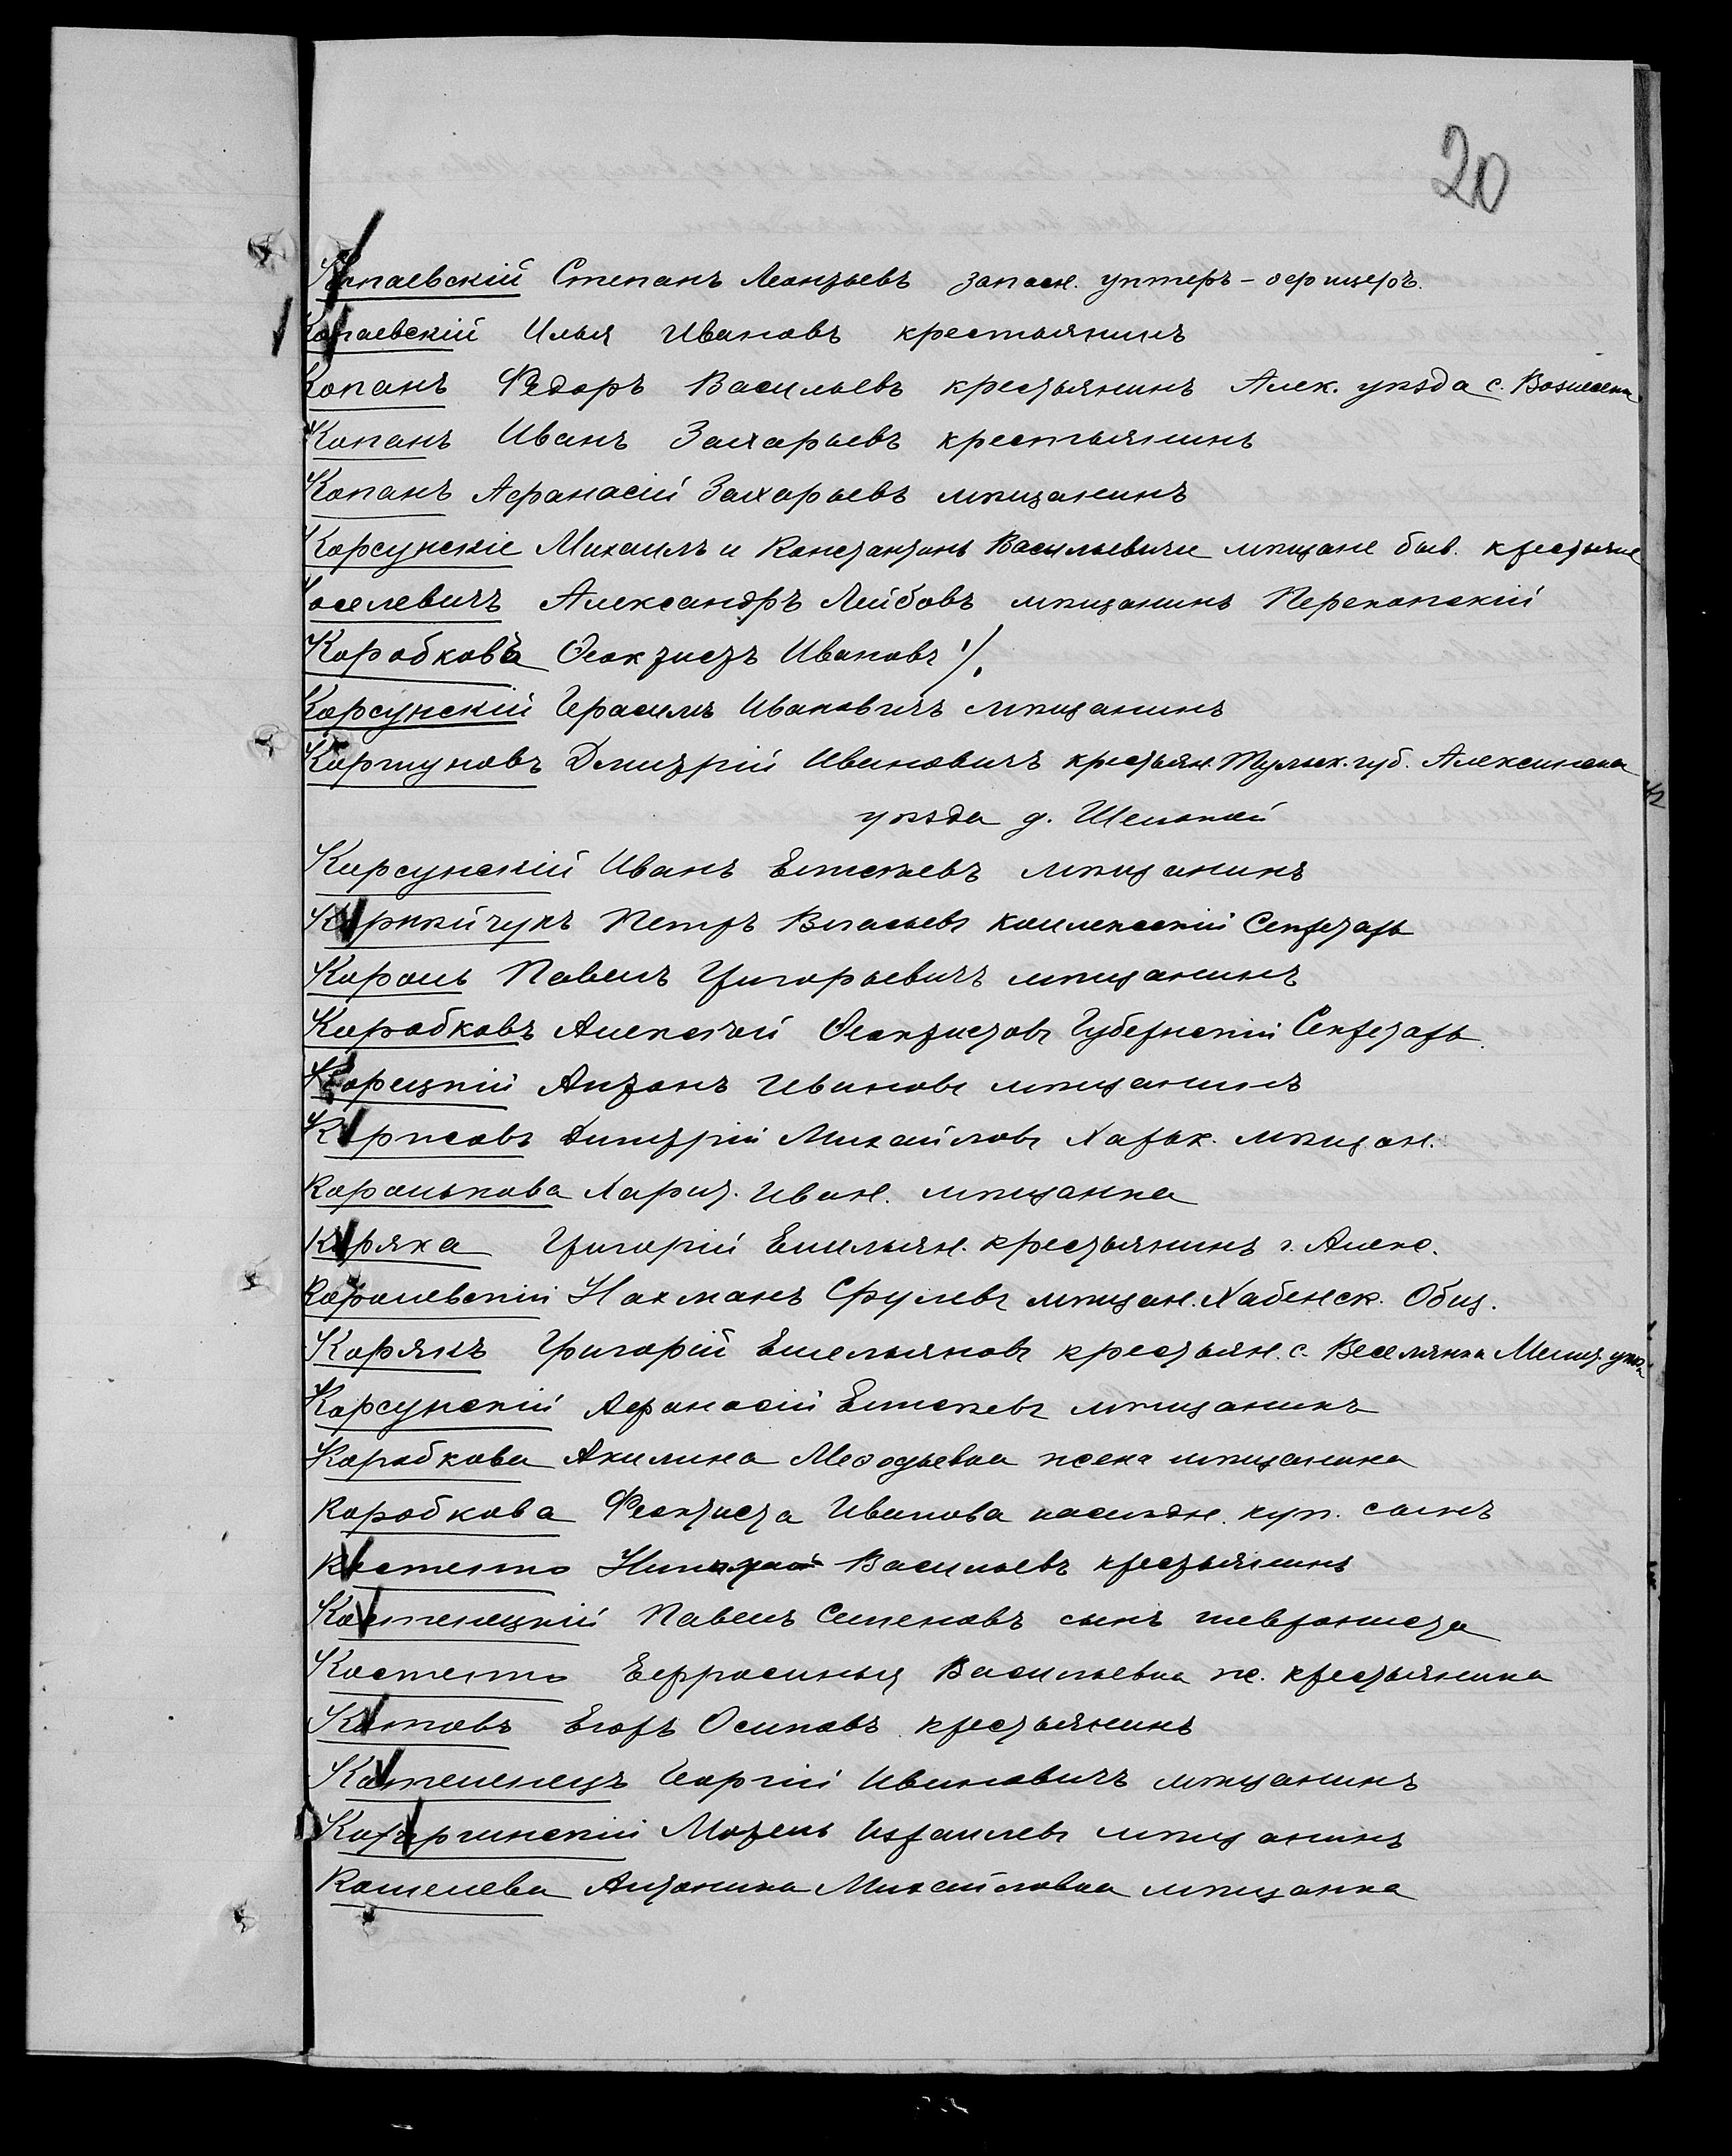 20
Копаевскій Степанъ Леонтьевъ запасн. унтеръ-офицеръ.
Копаевскій Илья Ивановъ крестьянинъ
Копанъ Ѳедоръ Васильевъ крестьянинъ Алек. уѣзда с. Вознесенка
Копанъ Иванъ Захарьевъ крестьянинъ
Копанъ Афанасій Захарьевъ мѣщанинъ
Корсунскіе Михаилъ и Константинъ Васильевичи мѣщане быв. крестьяне
Коселевичъ Александръ Лейбовъ мѣщанинъ Перекопскій
Коробкова Ѳеоктистъ Ивановъ
Корсунскій Герасимъ Ивановичъ мѣщанинъ
Коршуновъ Дмитрій Ивановичъ крестьян. Тульск. губ. Алексинска
уѣзда д.
Корсунскій Иванъ Елисѣевъ мѣщанинъ
Корнійчукъ Петръ Власьевъ коллежскій Секретарь
Король Павелъ Григорьевичъ мѣщанинъ
Коробковъ Алексѣй Ѳеоктистовъ Губернскій Секретарь.
Корецкій Антонъ Ивановъ мѣщанинъ
Димитрій Михайловъ Харьк. мѣщан.
Королькова Харит. Иван. мѣщанка
Коряка Григорій Емельян. крестьянинъ г. Алекс.
Королевскій Нахманъ Срулевъ мѣщан. Хабенск. Общ.
Корякъ Григорій Емельяновъ крестьян. с. Веселянка Мелит. уѣз
Корсунскій Афанасій Елисѣевъ мѣщанинъ
Коробкова Акилина Меѳодьевна жена мѣщанина
Коробкова Феоктиста Иванова наслѣдн. куп. сынъ
Костенко Николай Васильевъ крестьянинъ
Костенецкій Павелъ Семеновъ сынъ
Костенко Евфросинья Васильевна ж. крестьянина
Котовъ Егоръ Осиповъ крестьянинъ
Котеленецъ Георгій Ивановичъ мѣщанинъ
Мозель Израилевъ мѣщанинъ
Кошелева Антонина Михайловна мѣщанка